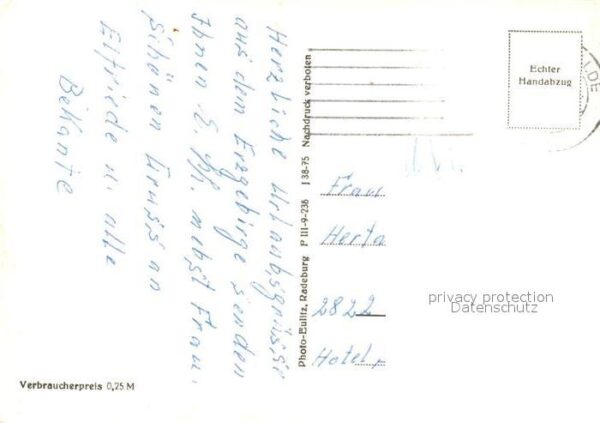 Herzliche Urlaubsgrüsse
aus dem Erzgebirge senden
Ihnen E. Pf. nebst Frau.
Schönen Gruss an
Elfriede u. alle
Bekante
Photo-Eulitz, Radeburg P III-9-236 J 38-75 Nachdruck verboten
Echter
Handabzug
LDE
Frau
Herta
2822
Hotel,
privacy protection
Datenschutz
Verbraucherpreis 0,25 M